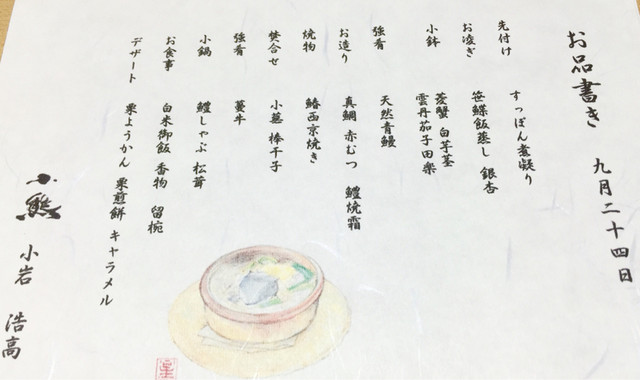 お品書き 九月二十四日
先付け すっぽん煮凝り
お凌ぎ 笹鰈飯蒸し 銀杏
小鉢 菱蟹 白芋茎
雲丹茄子田楽
強肴 天然青鰻
お造り 真鯛 赤むつ 鱧焼霜
焼物 鰆西京焼き
焚合せ 小蕪 棒干子
強肴 蔓牛
小鍋 鱧しゃぶ 松茸
お食事 白米御飯 香物 留椀
デザート 栗ようかん 栗煎餅 キャラメル
小熊 小岩 浩高